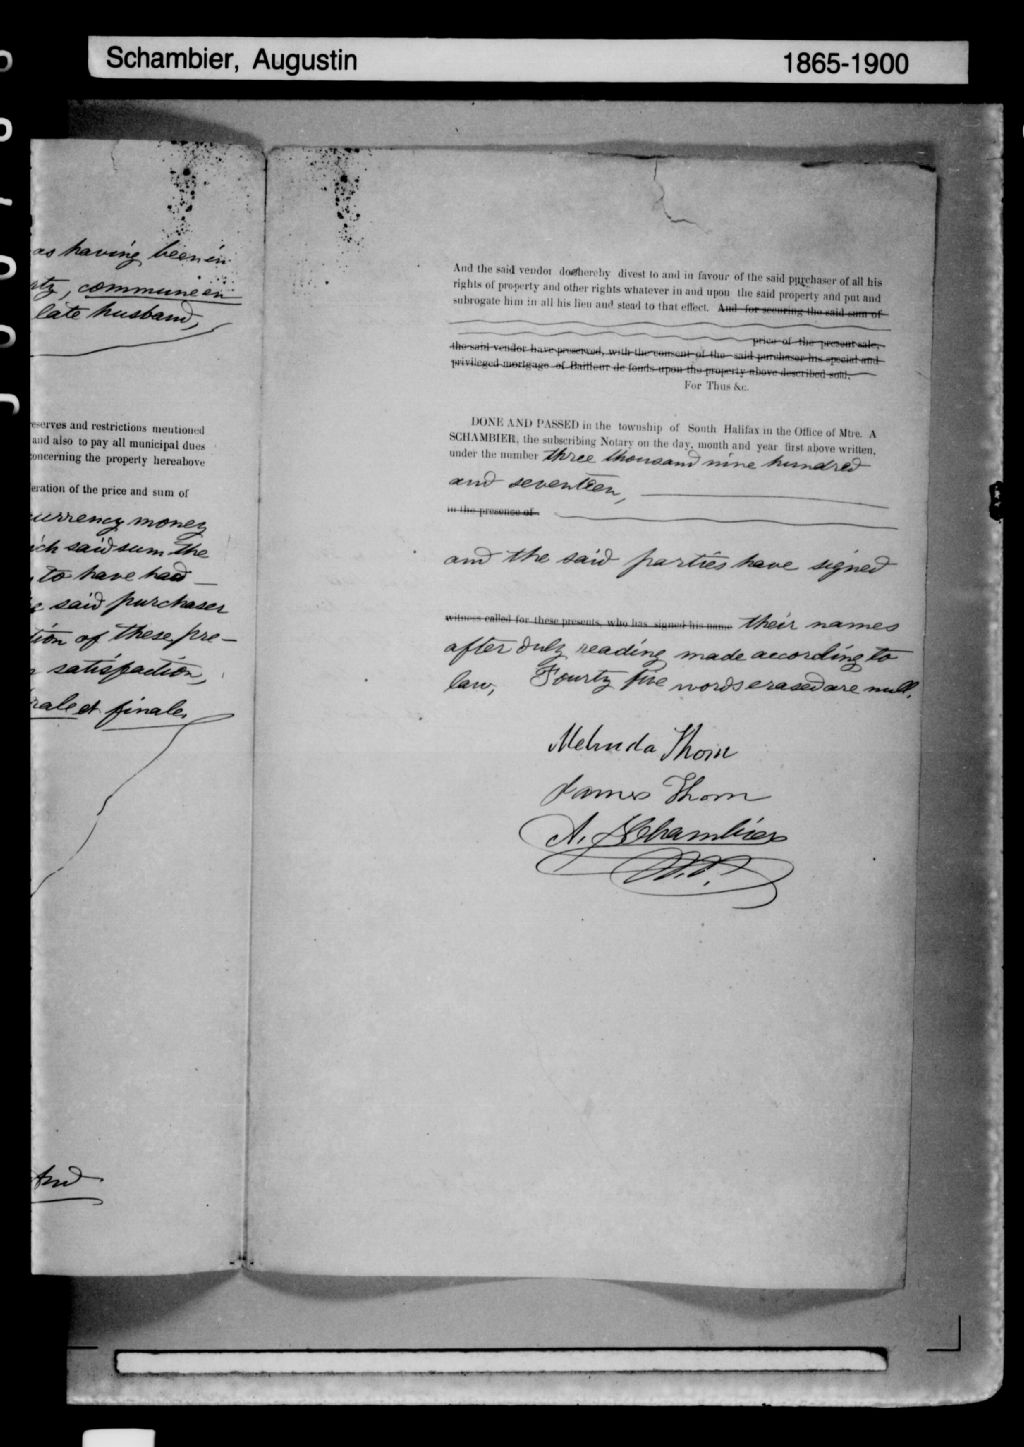 Schambier, Augustin 1865-1900
as having been in
rty, commune en
late husband,
eserves and restrictions mentioned
and also to pay all municipal dues
concerning the property hereabove
eration of the price and sum of
currency money
ich said sum the
to have had
e said purchaser
tion of these pre-
n satisfaction,
rale et finale,
And
And the said vendor doe hereby divest to and in favour of the said purchaser of all his
rights of property and other rights whatever in and upon the said property and put and
subrogate him in all his lieu and stead to that effect. And for securing the said sum of
price of the present sale,
the said vendor have preserved, with the consent of the said purchaser his special and
privileged mortgage of Bailleur de fonds upon the property above described sold.
For Thus &c.
DONE AND PASSED in the township of South Halifax in the Office of Mtre. A
SCHAMBIER, the subscribing Notary on the day, month and year first above written,
under the number three thousand nine hundred
and seventeen,
in the presence of
and the said parties have signed
witness called for these presents, who has signed his name their names
after duly reading made according to
law, Fourty five words erased are null.
Melinda Thorn
James Thorn
A. Schambier
N.P.